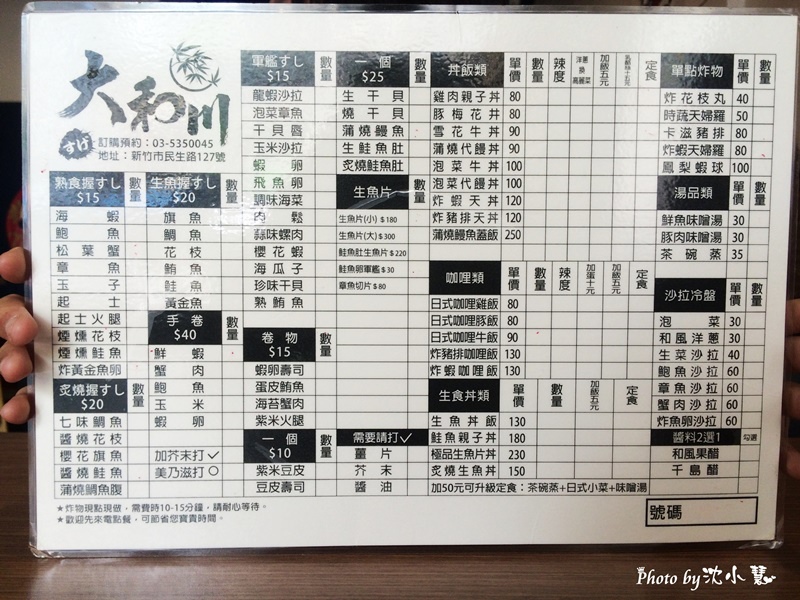 大和川
すし
訂購預約：03-5350045
地址：新竹市民生路127號
熟食握すし $15 數量
海蝦
鮑魚
松葉蟹
章魚
玉子
起士
起士火腿
煙燻花枝
煙燻鮭魚
炸黃金魚卵
炙燒握すし $20 數量
七味鯛魚
醬燒花枝
櫻花旗魚
醬燒鮭魚
蒲燒鯛魚腹
生魚握すし $20 數量
旗魚
鯛魚
花枝
鮪魚
鮭魚
黃金魚
手卷 $40 數量
鮮蝦
蟹肉
鮑魚
玉米
蝦卵
加芥末打✓
美乃滋打○
軍艦すし $15 數量
龍蝦沙拉
泡菜章魚
干貝唇
玉米沙拉
蝦卵
飛魚卵
調味海菜
肉鬆
蒜味螺肉
櫻花蝦
海瓜子
珍味干貝
熟鮪魚
卷物 $15 數量
蝦卵壽司
蛋皮鮪魚
海苔蟹肉
紫米火腿
一個 $10 數量
紫米豆皮
豆皮壽司
一個 $25 數量
生干貝
燒干貝
蒲燒鰻魚
生鮭魚肚
炙燒鮭魚肚
生魚片 數量
生魚片(小) $180
生魚片(大) $300
鮭魚肚生魚片 $220
鮭魚卵軍艦 $30
章魚切片 $80
需要請打✓
薑片
芥末
醬油
丼飯類 單價 數量 辣度 洋蔥換高麗菜 加飯五元 定食
雞肉親子丼 80
豚梅花丼 80
雪花牛丼 90
蒲燒代饅丼 90
泡菜牛丼 100
泡菜代饅丼 100
炸蝦天丼 120
炸豬排天丼 120
蒲燒鰻魚蓋飯 250
咖哩類 單價 數量 辣度 加蛋十元 加飯五元 定食
日式咖哩雞飯 80
日式咖哩豚飯 80
日式咖哩牛飯 90
炸豬排咖哩飯 130
炸蝦咖哩飯 130
生食丼類 單價 數量 加飯五元 定食
生魚丼飯 130
鮭魚親子丼 180
極品生魚片丼 230
炙燒生魚丼 150
加50元可升級定食：茶碗蒸+日式小菜+味噌湯
單點炸物 單價 數量
炸花枝丸 40
時蔬天婦羅 50
卡滋豬排 80
炸蝦天婦羅 80
鳳梨蝦球 100
湯品類 單價 數量
鮮魚味噌湯 30
豚肉味噌湯 30
茶碗蒸 35
沙拉冷盤 單價 數量
泡菜 30
和風洋蔥 30
生菜沙拉 40
鮑魚沙拉 60
章魚沙拉 60
蟹肉沙拉 60
炸魚卵沙拉 60
醬料2選1 勾選
和風果醋
千島醋
★炸物現點現做，需費時10-15分鐘，請耐心等待。
★歡迎先來電點餐，可節省您寶貴時間。
號碼
Photo by沈小慧